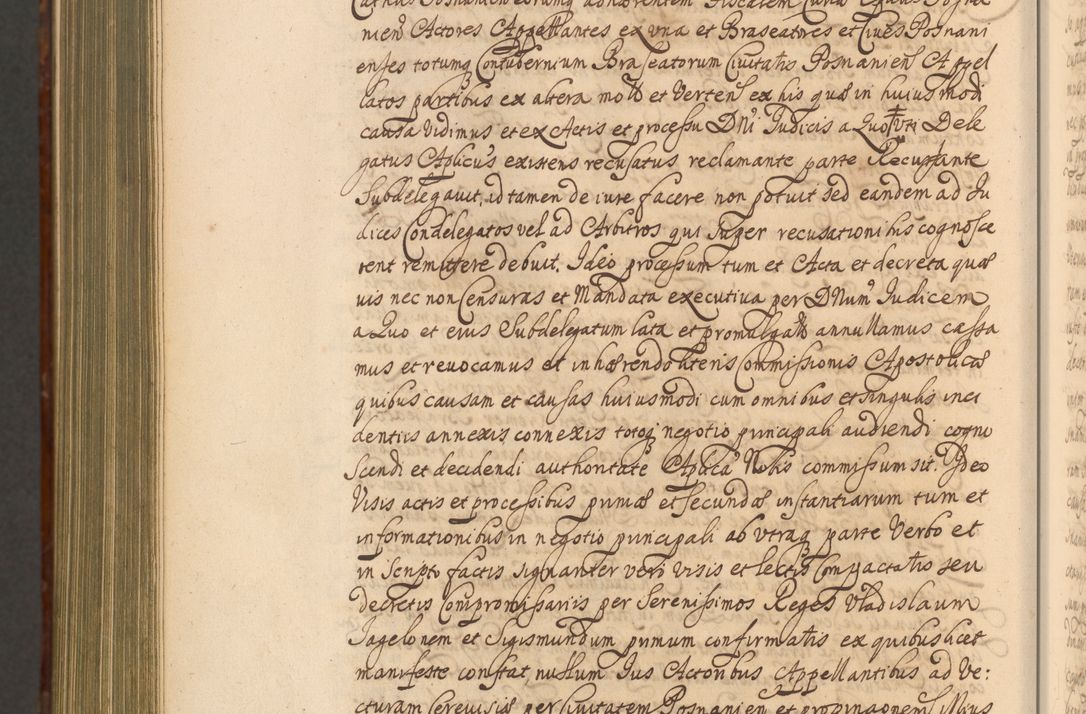 nien̄ Actores Appellantes ex vna et Braseatores et Ciues Posnani
enses totumq̨ Contubernium Braseatorum Ciuitatis Posnanien̄ Appel
latos partibus ex altera mot̄ et Verten̄ ex his quæ in huiusmodi
causa vidimus et ex Actis et processu D͞ni Iudicis a Quo uti Dele
gatus Ap̄licus existens recusatus reclamante parte Recusante
Subdelegauit, id tamen de iure facere non potuit sed eandem ad Iu
dices Condelegatos vel ad Arbitros qui super recusationi his cognosce
rent remittere debuit. Ideo processum tum et Acta et decreta quæ
vis nec non Censuras et Mandata executiua per D͞num Iudicem
a Quo et eius Subdelegatum lata et promulgat̄ annullamus cassa
mus et reuocamus et inhærendo literis Commissionis Apostolicæ
quibus causam et causas huiusmodi cum omnibus et singulis inci
dentiis annexis connexis totoq̨ negotio principali audiendi cogno
scendi et decidendi authoritate Ap̄lica Nobis commissum sit. Ideo
Visis actis et processibus primæ et secundæ instantiarum tum et
informationibus in negotio principali ab vtraq̨ parte Verbo et
in Scripto factis signanter veri visis et lectis Compactatis seu
decretis Compromissariis per Serenissimos Reges Vladislaum
Jagelonem et Sigismundum primum confirmatis ex quibus licet
manifeste constat nullum Ius Actoribus Appellantibus ad Ve:
cturam Cereuisiæ per Ciuitatem Posnanien̄ et propinaonem̄